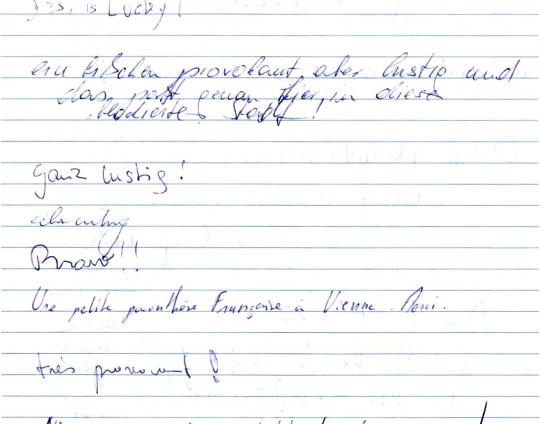 Yes, is Lucky!
ein bißchen provokant, aber lustig und
das paßt genau hier, in diese
Stadt!
ganz lustig!
Bravo!!
Une petite parenthèse Française à Vienne. Merci.
très provocant!